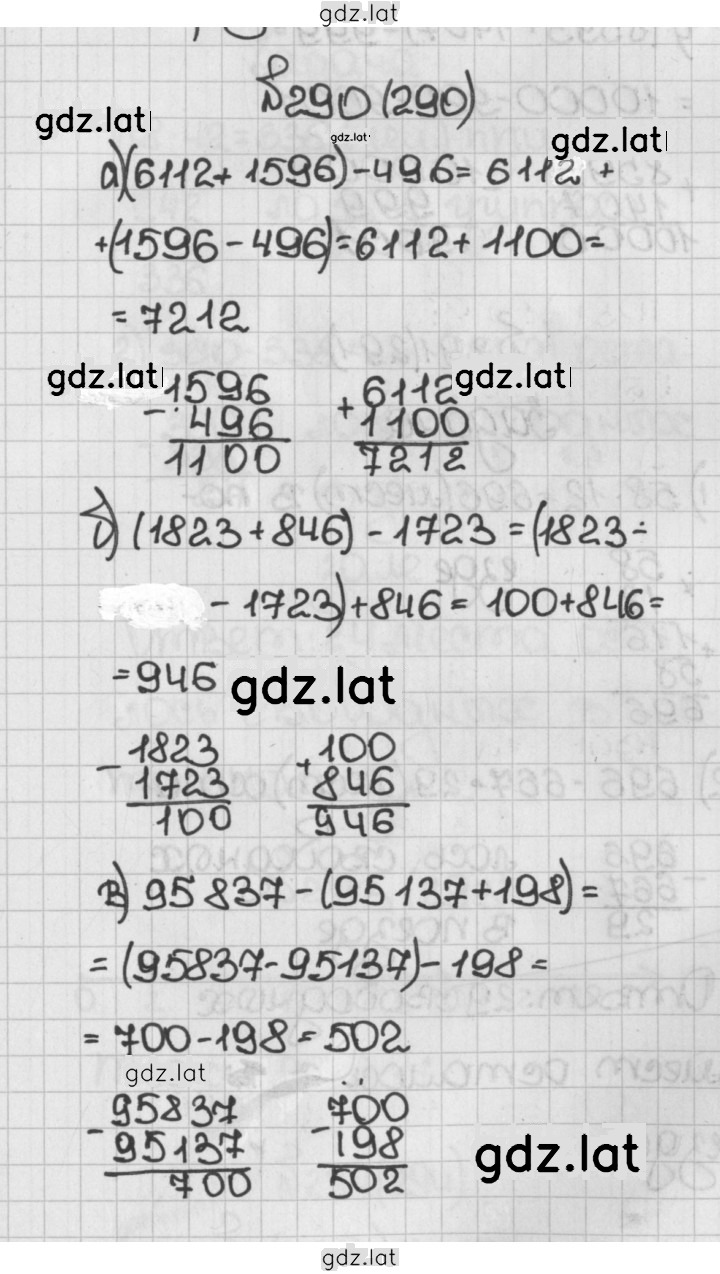 gdz.lat
№290 (290)
gdz.lat gdz.lat gdz.lat
а) (6112 + 1596) - 496 = 6112 +
+ (1596 - 496) = 6112 + 1100 =
= 7212
gdz.lat 1596 6112 gdz.lat
- 496 + 1100
1100 7212
б) (1823 + 846) - 1723 = (1823 -
- 1723) + 846 = 100 + 846 =
= 946 gdz.lat
- 1823 + 100
1723 846
100 946
в) 95 837 - (95 137 + 198) =
= (95837 - 95137) - 198 =
= 700 - 198 = 502
gdz.lat
- 95837 - 700
95137 198 gdz.lat
700 502
gdz.lat